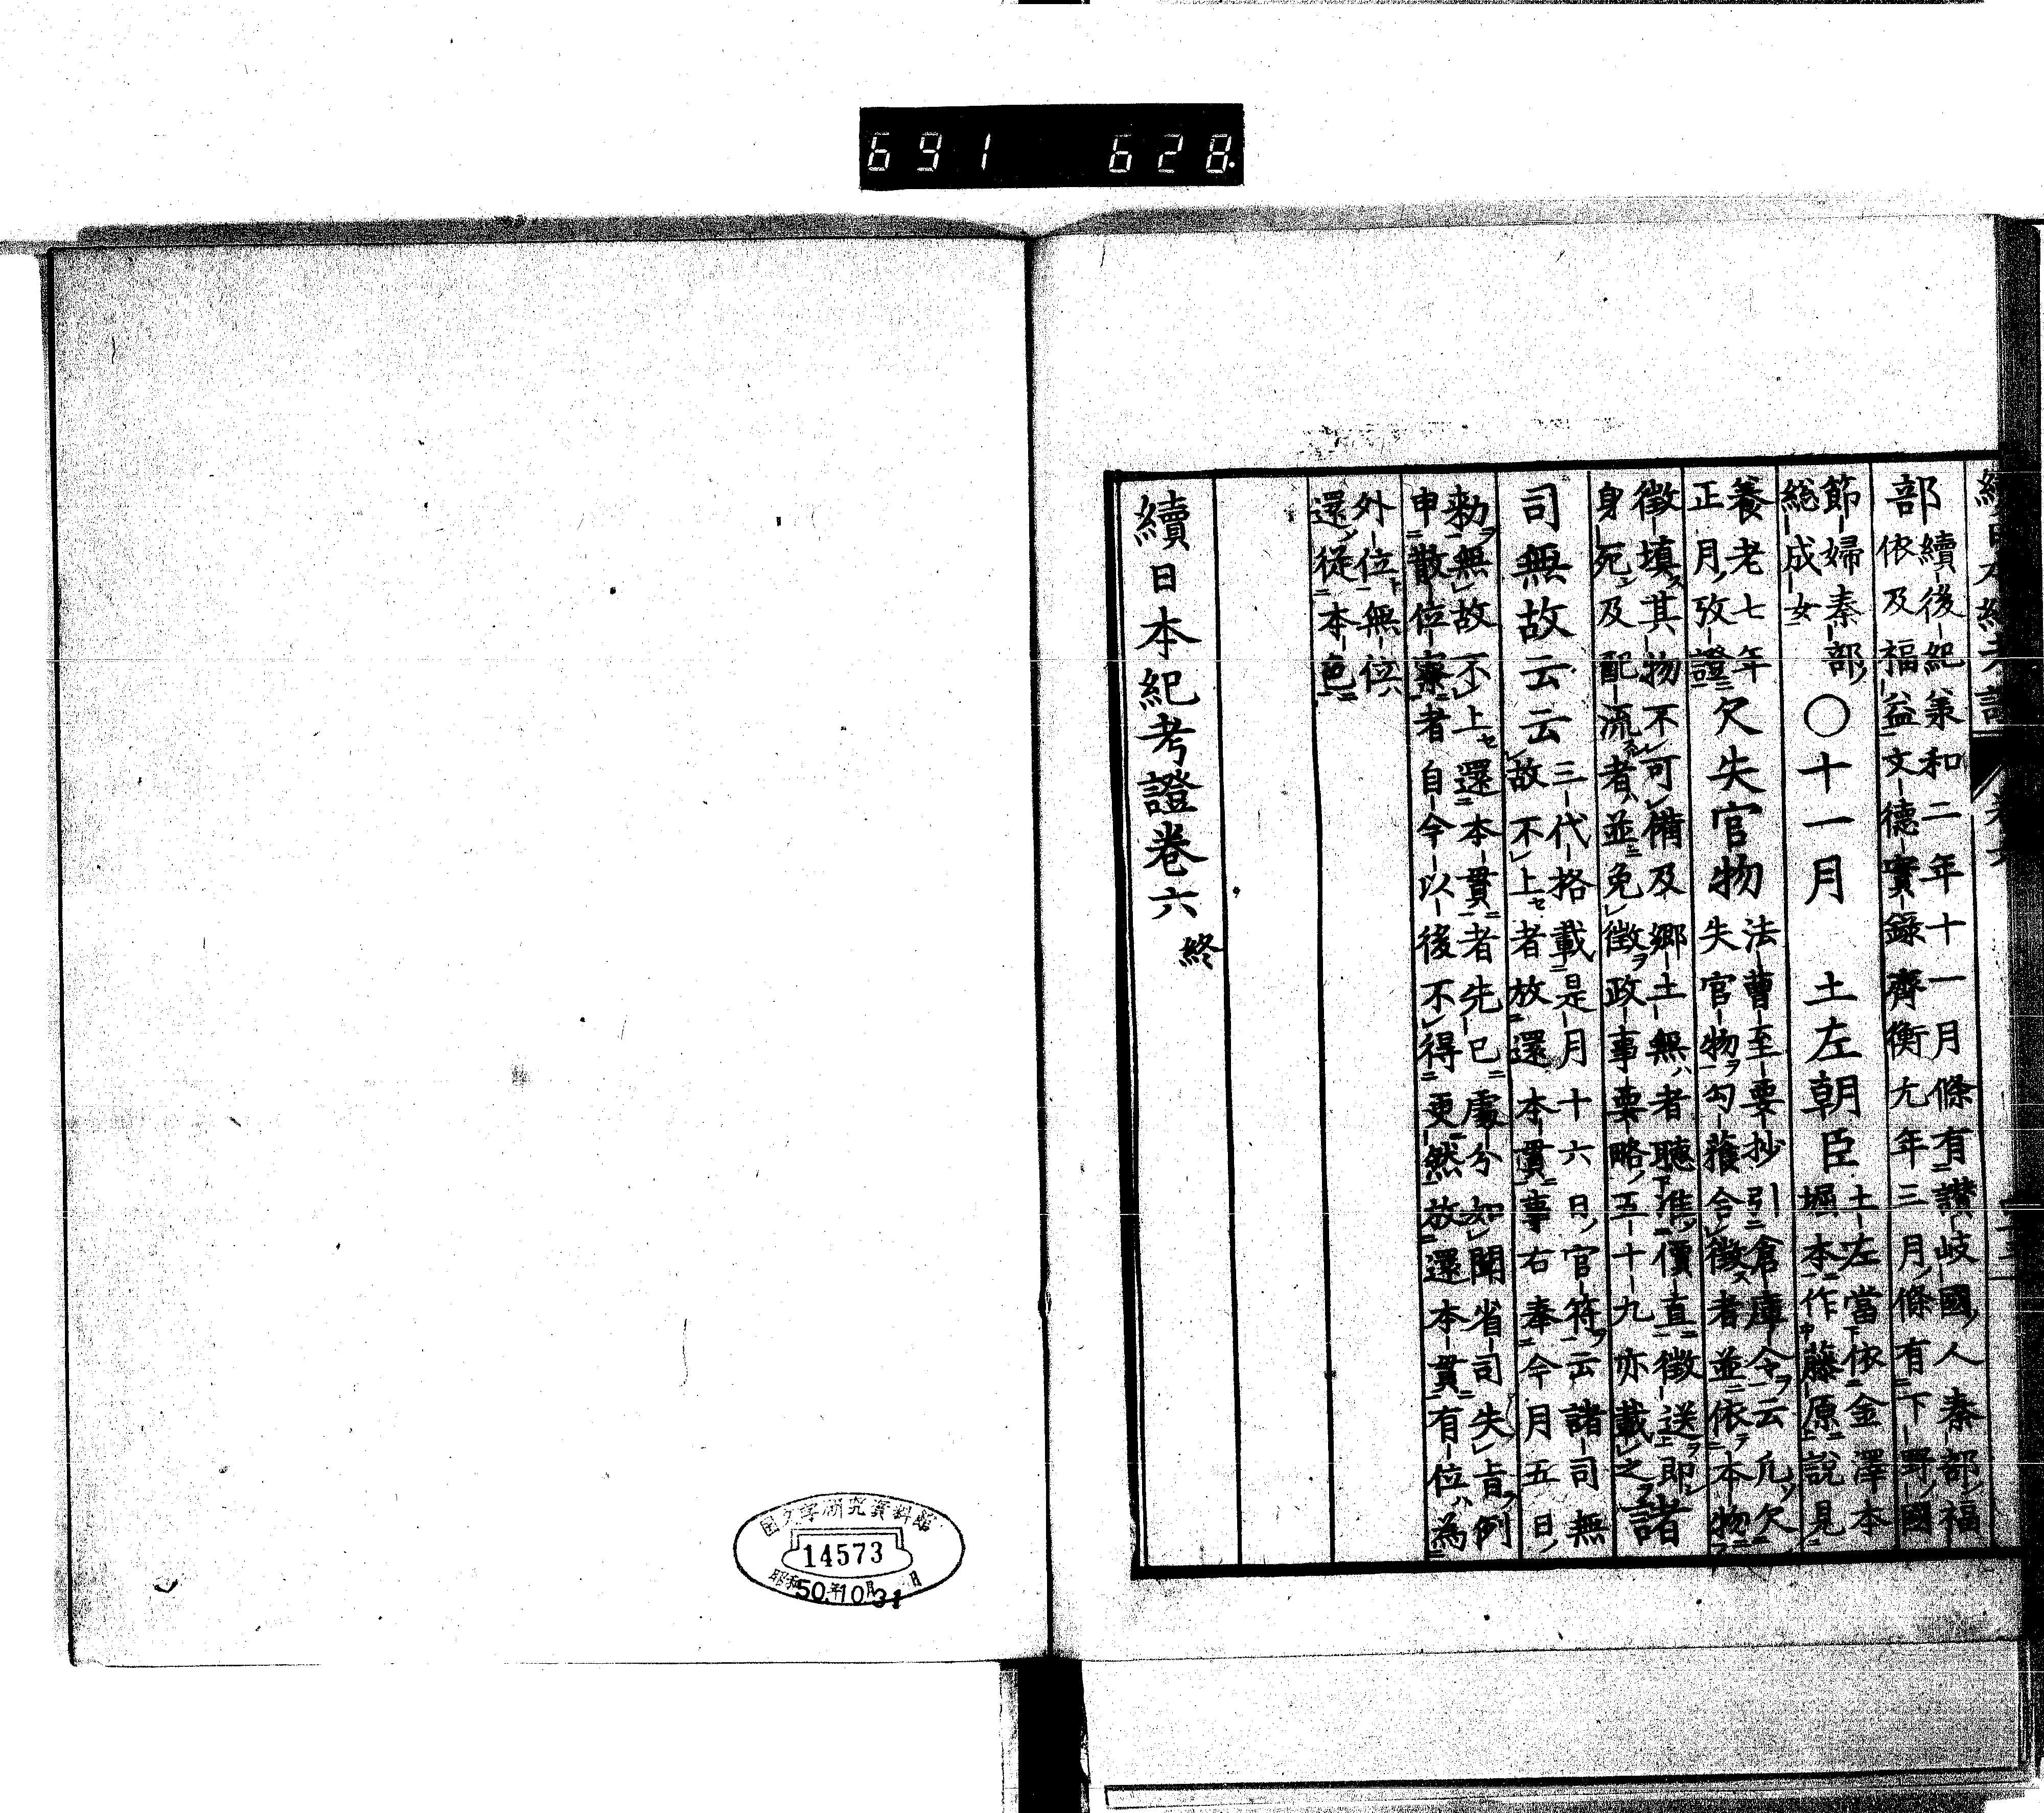 691 628
部 續後紀兼和二年十一月條有讚岐國人秦部福
依及福益文德實錄齊衡九年三月條有下野國
節婦秦部
總成女 〇十一月 土左朝臣 土左當依金澤本
堀本作藤原說見
養老七年
正月攷證 欠失官物 法曹至要抄引倉庫令云凡欠
失官物勾獲合徵者並依本物
徵填其物不可備及鄉土無者聽準價直徵送即
身死及配流者並免徵政事要略五十九亦載之 諸
司無故云云 三代格載是月十六日官符云諸司無
故不上者放還本貫事右奉今月五日
勅無故不上還本貫者先已處分如聞省司失旨例
申散位寮者自今以後不得更然放還本貫有位為
外位無位
還從本色
續日本紀考證卷六 終
国文学研究資料館
14573
昭和50年10月31日